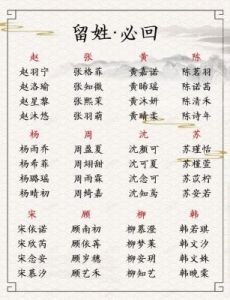 留姓·必回
赵 张 黄 陈
赵羽宁 张格菲 黄嘉诺 陈茗羽
赵洛瑜 张知微 黄睎瑶 陈诺茜
赵星黎 张熙茉 黄沐妍 陈清禾
赵沐悠 张羽萌 黄晴柔 陈诗年
杨 周 沈 苏
杨雨乔 周盈夏 沈颜可 苏瑾恬
杨希菲 周翊甜 沈可夏 苏槿萱
杨璐瑶 周雨霏 沈念可 苏苡柠
杨晴初 周绮嘉 沈知鸢 苏姿若
宋 顾 柳 韩
宋依诺 顾南初 柳慕澄 韩若琪
宋欣芮 顾依苒 柳梦莱 韩文汐
宋念安 顾岁穗 柳安玥 韩文姝
宋慕汐 顾艺禾 柳知艺 韩晚棠